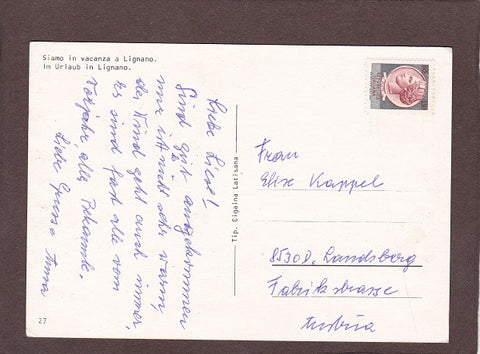 Siamo in vacanza a Lignano.
Im Urlaub in Lignano.
Liebe Liesl!
Sind gut angekommen
nur ist nicht sehr warm,
der Wind geht auch immer,
es sind fast alle vom
Vorjahr, alles Bekannte,
Liebe Grüsse Anna
27
Tip. Cigaina Latisana
Frau
Elise Kappel
8530 D. Landsberg
Fabrikstrasse
Austria